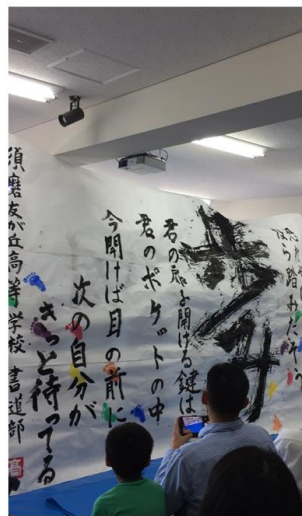 踏みだそう
君の扉を開ける鍵は
君のポケットの中
今開けば目の前に
次の自分が
きっと待ってる
須磨友が丘高等学校 書道部